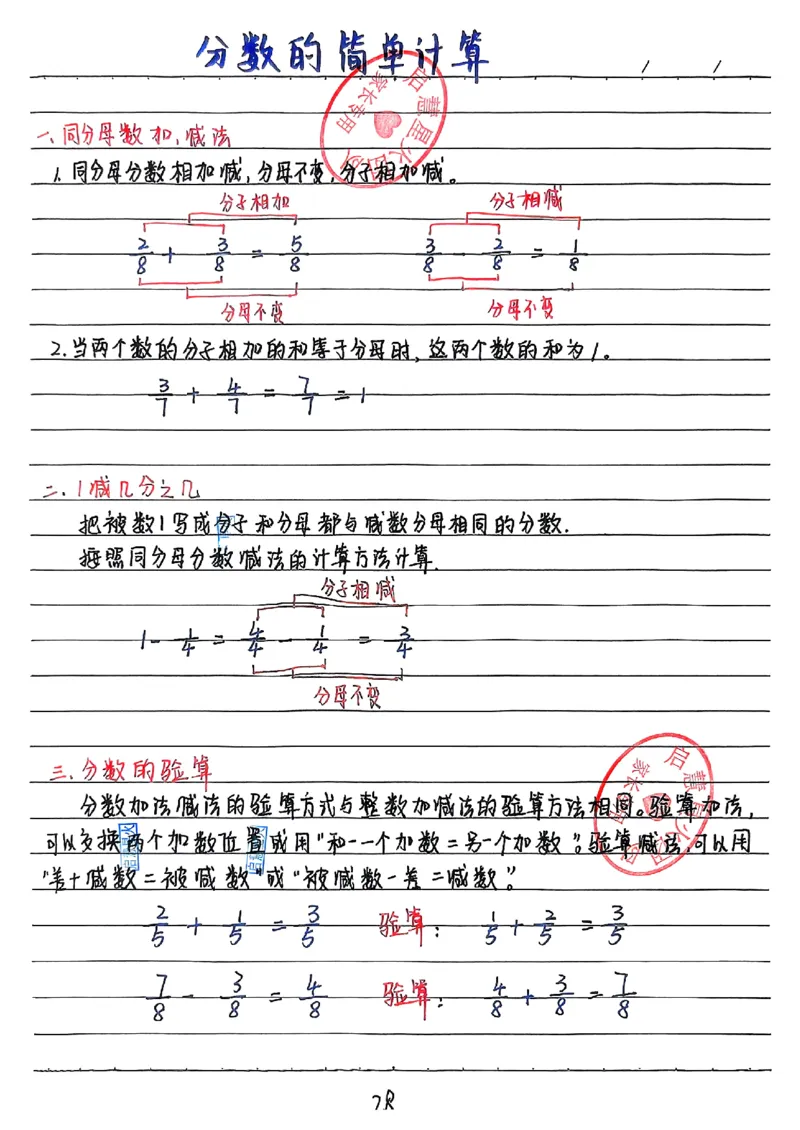 分数的简单计算
/ /
一、同分母数加、减法
1. 同分母分数相加减,分母不变,分子相加减。
分子相加 分子相减
2/8 + 3/8 = 5/8 3/8 - 2/8 = 1/8
分母不变 分母不变
2. 当两个数的分子相加的和等于分母时,这两个数的和为1。
3/7 + 4/7 = 7/7 = 1
二. 1减几分之几
把被数1写成分子和分母都与减数分母相同的分数.
按照同分母分数减法的计算方法计算.
分子相减
1 - 1/4 = 4/4 - 1/4 = 3/4
分母不变
三. 分数的验算
分数加法减法的验算方式与整数加减法的验算方法相同。验算加法,
可以交换两个加数位置或用“和-一个加数=另一个加数”。验算减法,可以用
“差+减数=被减数”或“被减数-差=减数”。
2/5 + 1/5 = 3/5 验算: 1/5 + 2/5 = 3/5
7/8 - 3/8 = 4/8 验算: 4/8 + 3/8 = 7/8
启慧星火
家长专用
启慧星火
家长